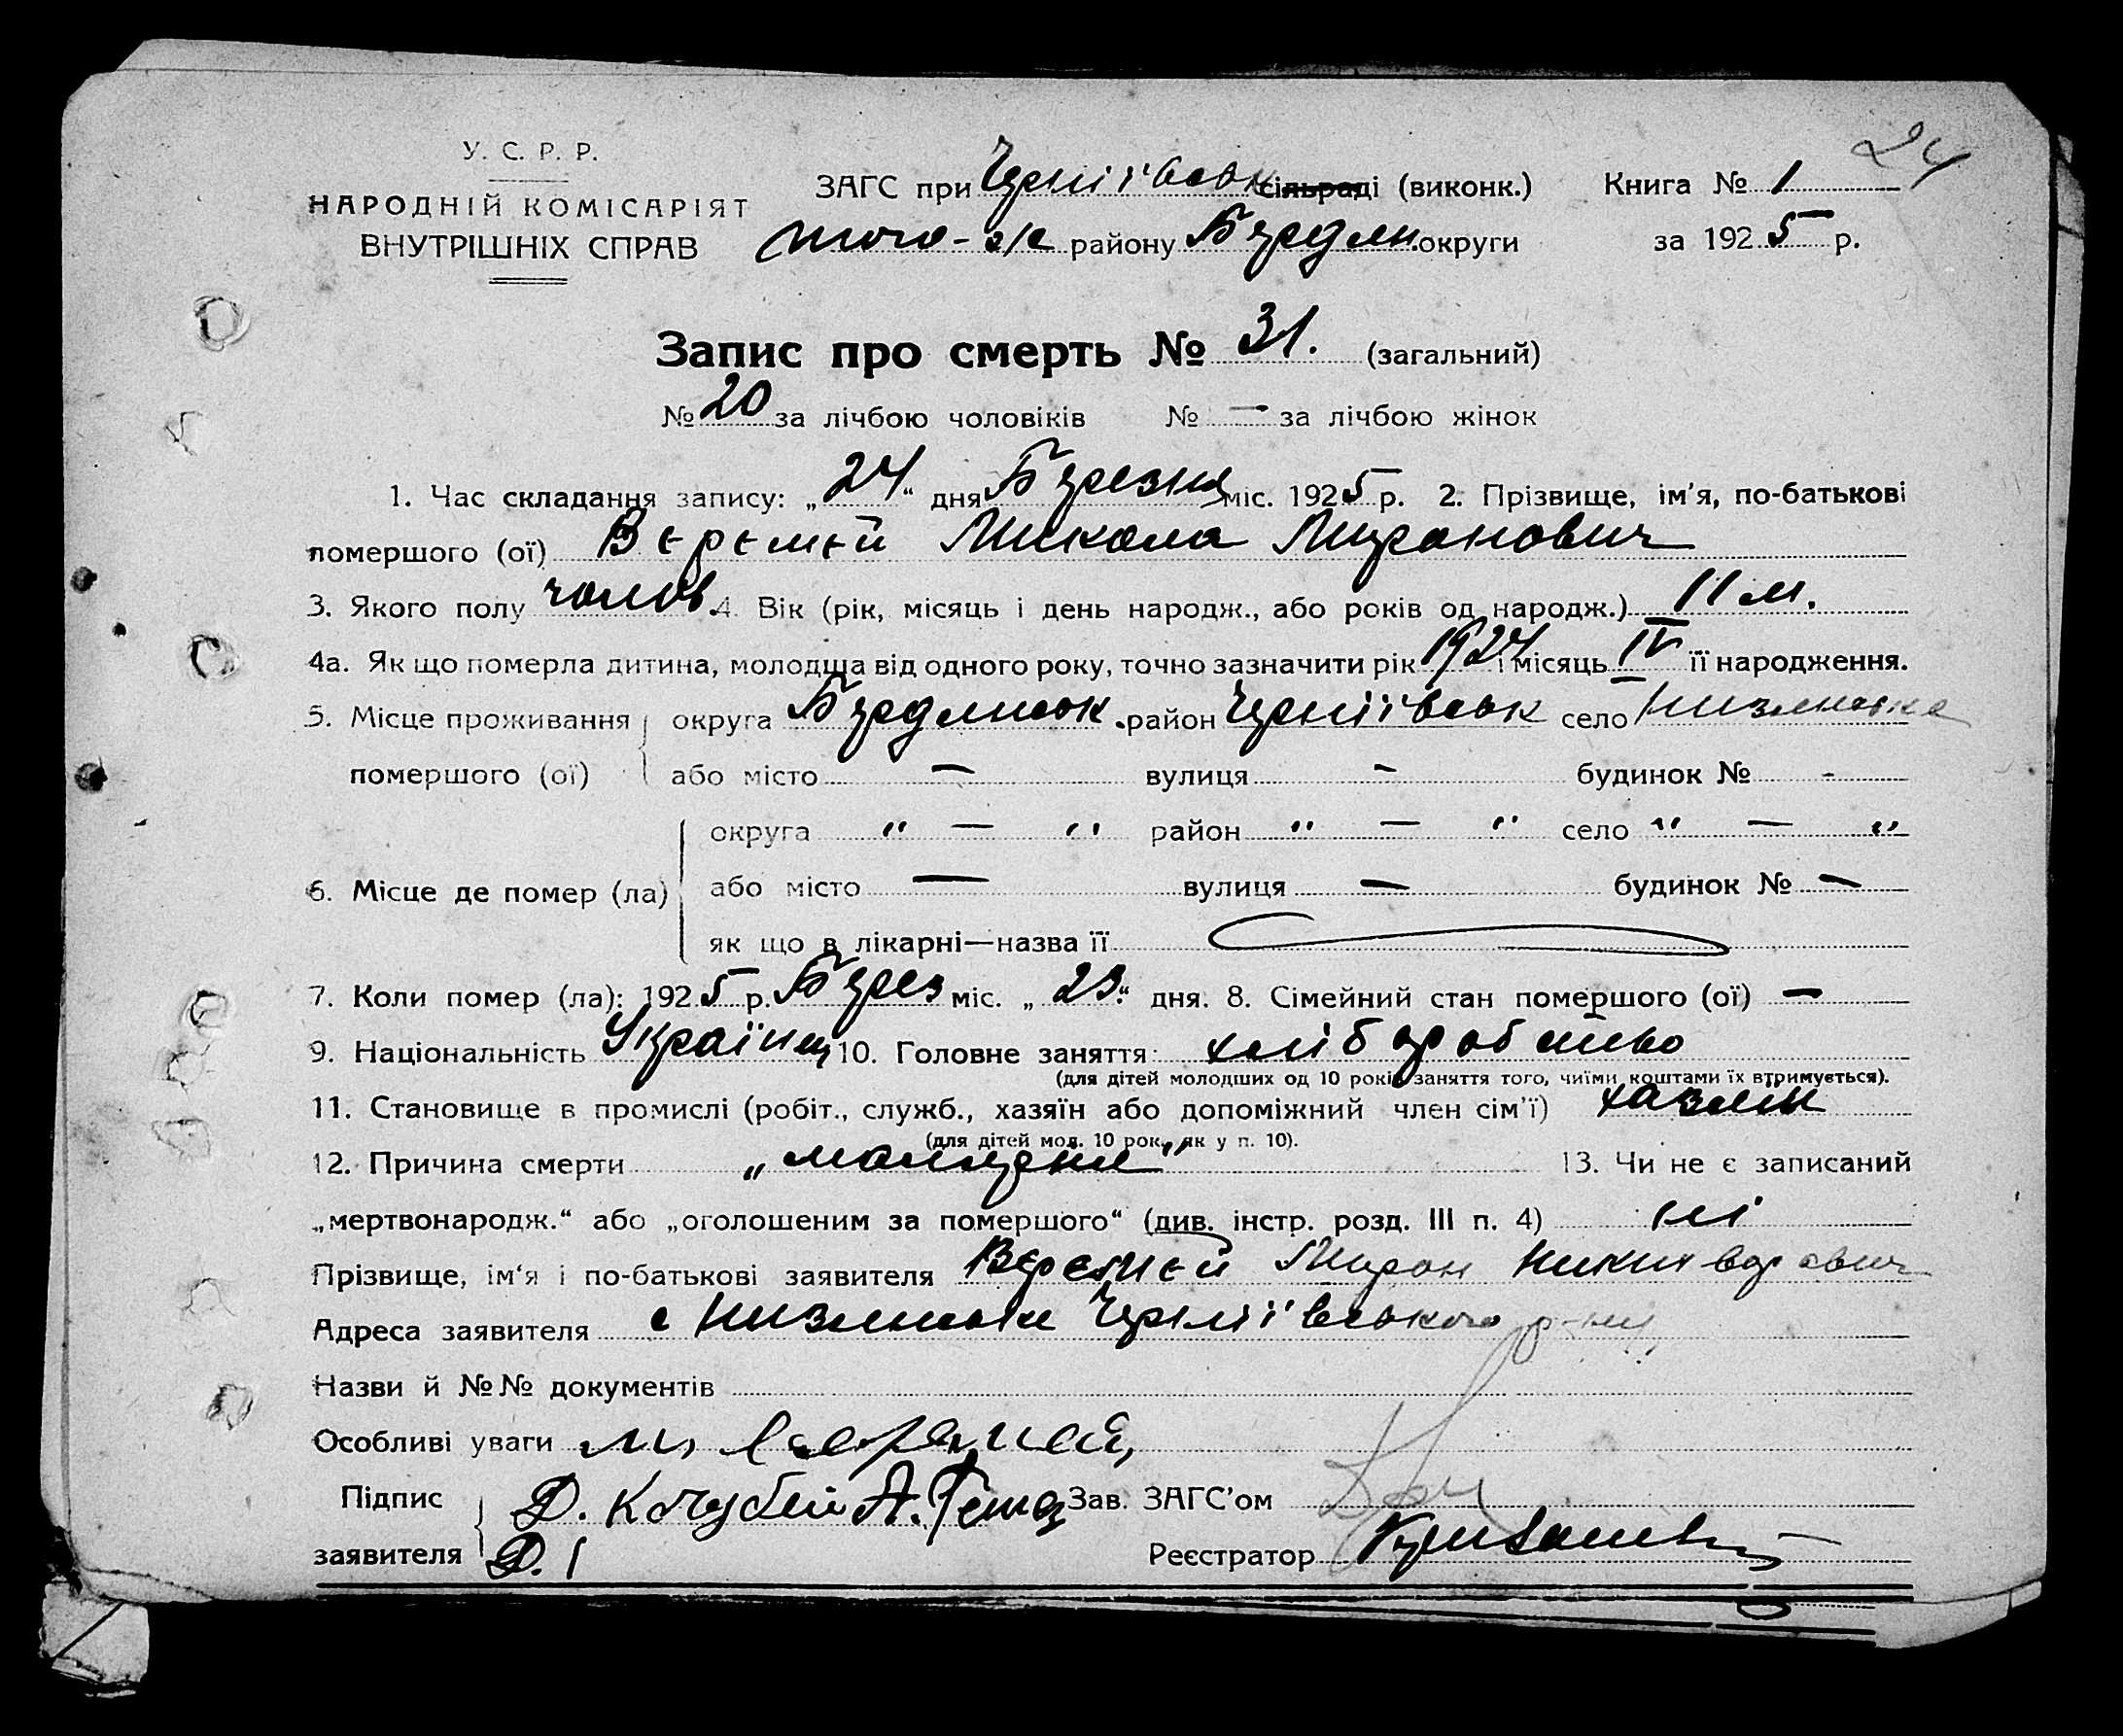 24
У. С. Р. Р.
НАРОДНІЙ КОМІСАРІЯТ
ВНУТРІШНІХ СПРАВ
ЗАГС при Черніївськ сільраді (виконк.) Книга № 1
того-ж району Бердян. округи за 1925 р.
Запис про смерть № 31. (загальний)
№ 20 за лічбою чоловіків № — за лічбою жінок
1. Час складання запису: „24“ дня Березня міс. 1925 р. 2. Прізвище, ім'я, по-батькові
помершого (ої) Веремей Микола Миронович
3. Якого полу чолов. 4. Вік (рік, місяць і день народж., або років од народж.) 11 м.
4а. Як що померла дитина, молодща від одного року, точно зазначити рік 1924 і місяць IV її народження.
5. Місце проживання округа Бердянськ. район Черніївськ село Низянське
помершого (ої) або місто — вулиця - будинок № -
округа " — " район " — " село " — "
6. Місце де помер (ла) або місто — вулиця — будинок № —
як що в лікарні—назва її
7. Коли помер (ла): 1925 р. Берез міс. „23.“ дня. 8. Сімейний стан помершого (ої) —
9. Національність Українец 10. Головне заняття: хліборобство
(для дітей молодших од 10 років заняття того, чиїми коштами їх втримується).
11. Становище в промислі (робіт., служб., хазяїн або допоміжний член сім'ї) хазяїн
(для дітей мол. 10 рок., як у п. 10).
12. Причина смерти 13. Чи не є записаний
„мертвонародж.“ або „оголошеним за помершого“ (див. інстр. розд. III п. 4) ні
Прізвище, ім'я і по-батькові заявителя Веремей Мирон Никифорович
Адреса заявителя с Низянське Черніївського р-ну
Назви й №№ документів
Особливі уваги
Підпис Д. Кочубей А. Зав. ЗАГС'ом
заявителя Реєстратор